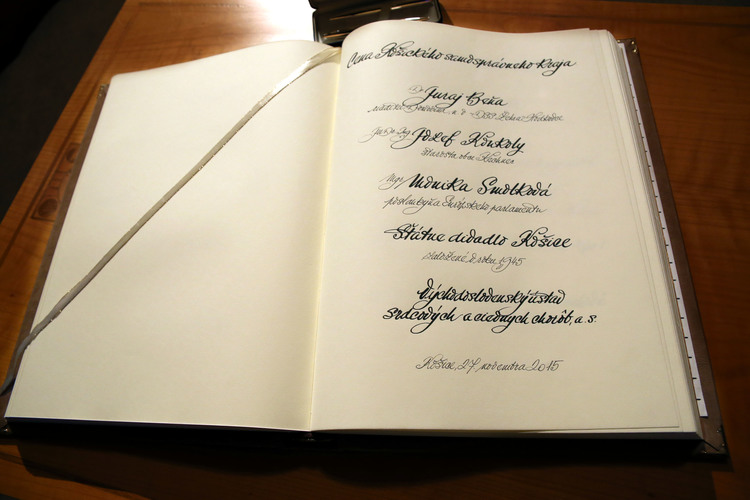 Cena Košického samosprávneho kraja
Juraj Beňa
Jozef Konkoly
starosta obce Kechnec
Mgr. Monika Smolková
poslankyňa Európskeho parlamentu
Štátne divadlo Košice
založené v roku 1945
Východoslovenský ústav
srdcových a cievnych chorôb, a.s.
Košice, 27. novembra 2015